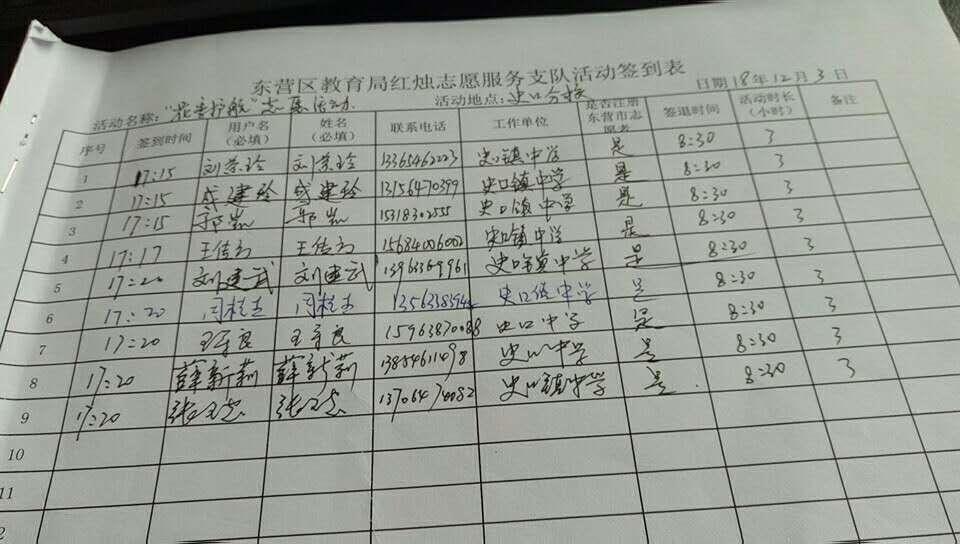 东营区教育局红烛志愿服务支队活动签到表
活动名称: 护航"志愿活动 活动地点: 史口分校 日期 18年12月3日
序号 签到时间 用户名(必填) 姓名(必填) 联系电话 工作单位 是否注册东营市志愿者 签退时间 活动时长(小时) 备注
1 17:15 刘荣玲 刘荣玲 13365462223 史口镇中学 是 8:30 3
2 17:15 成建玲 成建玲 13156470399 史口镇中学 是 8:30 3
3 17:15 郭岩 郭岩 15318302555 史口镇中学 是 8:30 3
4 17:17 15684006002 史口镇中学 是 8:30 3
5 17:20 刘建武 刘建武 13963369961 史口镇中学 是 8:30 3
6 17:20 史口镇中学 是 8:30 3
7 17:20 15963870088 史口中学 是 8:30 3
8 17:20 薛新莉 薛新莉 13854611498 史口中学 是 8:30 3
9 17:20 13706474082 史口镇中学 是 8:30 3
10
11